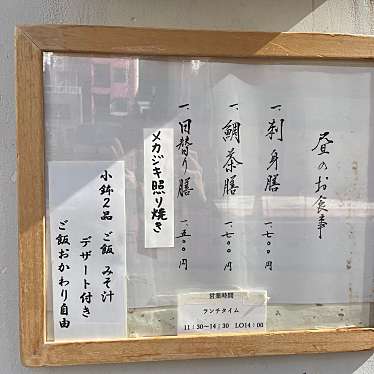 昼のお食事
一、刺身膳 一、七〇〇円
一、鯛茶膳 一、七〇〇円
一、日替り膳 一、五〇〇円
メカジキ照り焼き
小鉢2品 ご飯 みそ汁
デザート付き
ご飯おかわり自由
営業時間
ランチタイム
11:30〜14:30 LO14:00